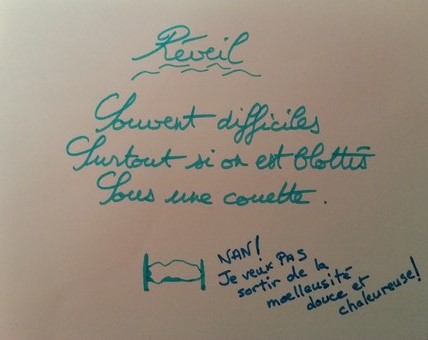 Réveil
Souvent difficiles
Surtout si on est blottis
Sous une couette.
NAN!
Je veux PAS
sortir de la
moelleusité
douce et
chaleureuse!